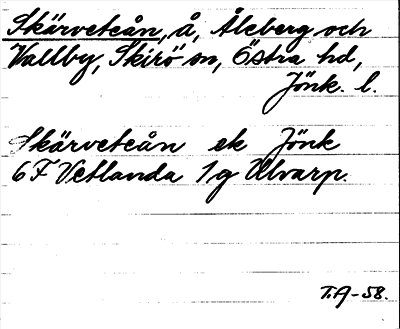 Skärveteån, å, Åleberg och
Vallby, Skirö sn, Östra hd,
Jönk. l.
Skärveteån ek Jönk
6F Vetlanda 1g Ulvarp.
T.A-58.